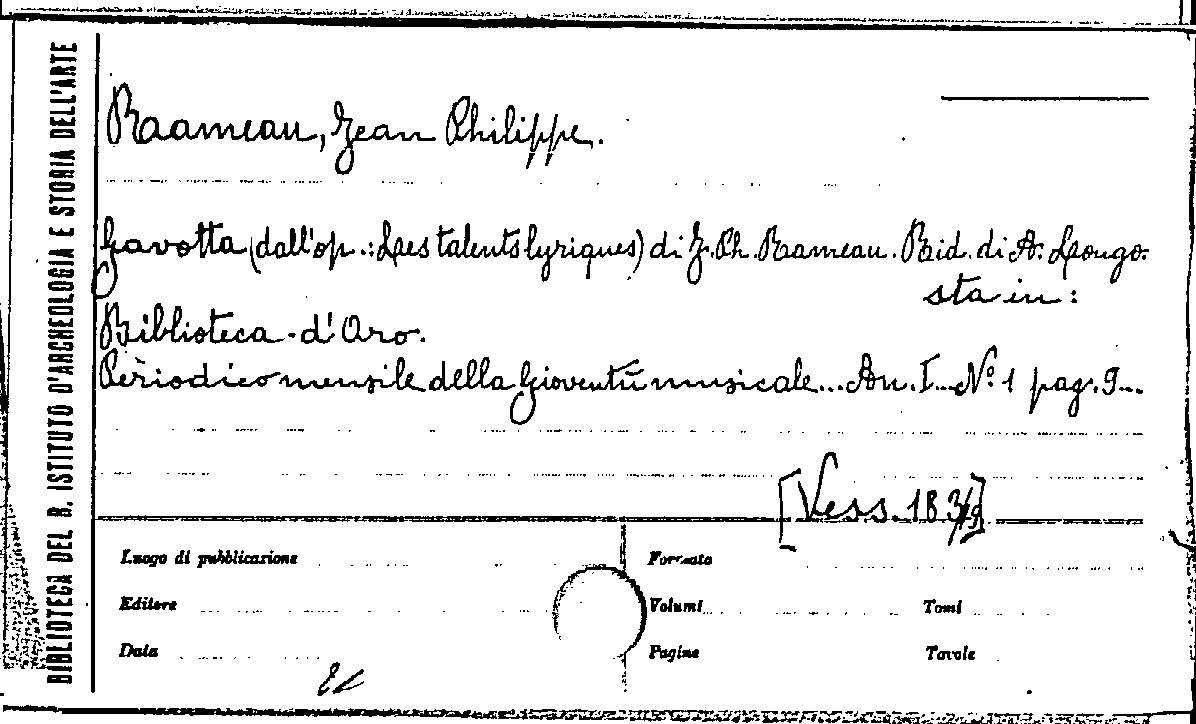 BIBLIOTECA DEL R. ISTITUTO D'ARCHEOLOGIA E STORIA DELL'ARTE
Raameau, Jean Philippe.
Gavotta (dall'op.: Les talents lyriques) di J. Ph. Rameau. Rid. di A. Longo.
sta in:
Biblioteca d'Oro.
Periodico mensile della Gioventù musicale... An. I... N.º 1 pag. 9...
[Vess. 183/9]
Luogo di pubblicazione
Formato
Editore
Volumi
Tomi
Data
Pagine
Tavole